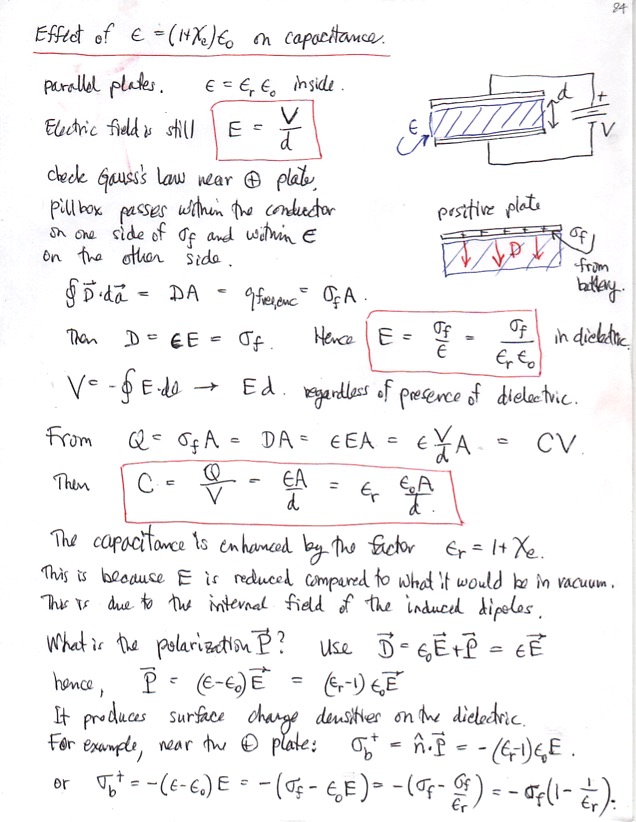 84
Effect of ε = (1+χₑ)ε₀ on capacitance.
parallel plates. ε = εᵣ ε₀ inside.
Electric field is still E = V/d
d
+
V
ε
check Gauss's Law near ⊕ plate,
pillbox passes within the conductor
on one side of σf and within ε
on the other side.
positive plate
+ + + + +
σf
D
from
battery.
∮ D⃗·da⃗ = DA = qfree,enc = σf A.
Then D = εE = σf. Hence E = σf/ε = σf/(εᵣ ε₀) in dielectric.
V = -∮ E·dl → Ed. regardless of presence of dielectric.
From Q = σf A = DA = εEA = ε V/d A = CV
Then C = Q/V = εA/d = εᵣ ε₀A/d.
The capacitance is enhanced by the factor εᵣ = 1 + χₑ.
This is because E is reduced compared to what it would be in vacuum.
This is due to the internal field of the induced dipoles.
What is the polarization P⃗? Use D⃗ = ε₀E⃗ + P⃗ = εE⃗
hence, P⃗ = (ε-ε₀)E⃗ = (εᵣ-1) ε₀E⃗
It produces surface charge densities on the dielectric.
For example, near the ⊕ plate: σb⁺ = n̂·P⃗ = -(εᵣ-1)ε₀E.
or σb⁺ = -(ε-ε₀)E = -(σf - ε₀E) = -(σf - σf/εᵣ) = -σf(1 - 1/εᵣ).